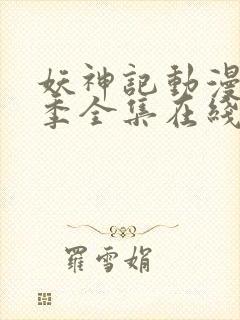 妖神記動漫
季全集在綫
羅雪娟